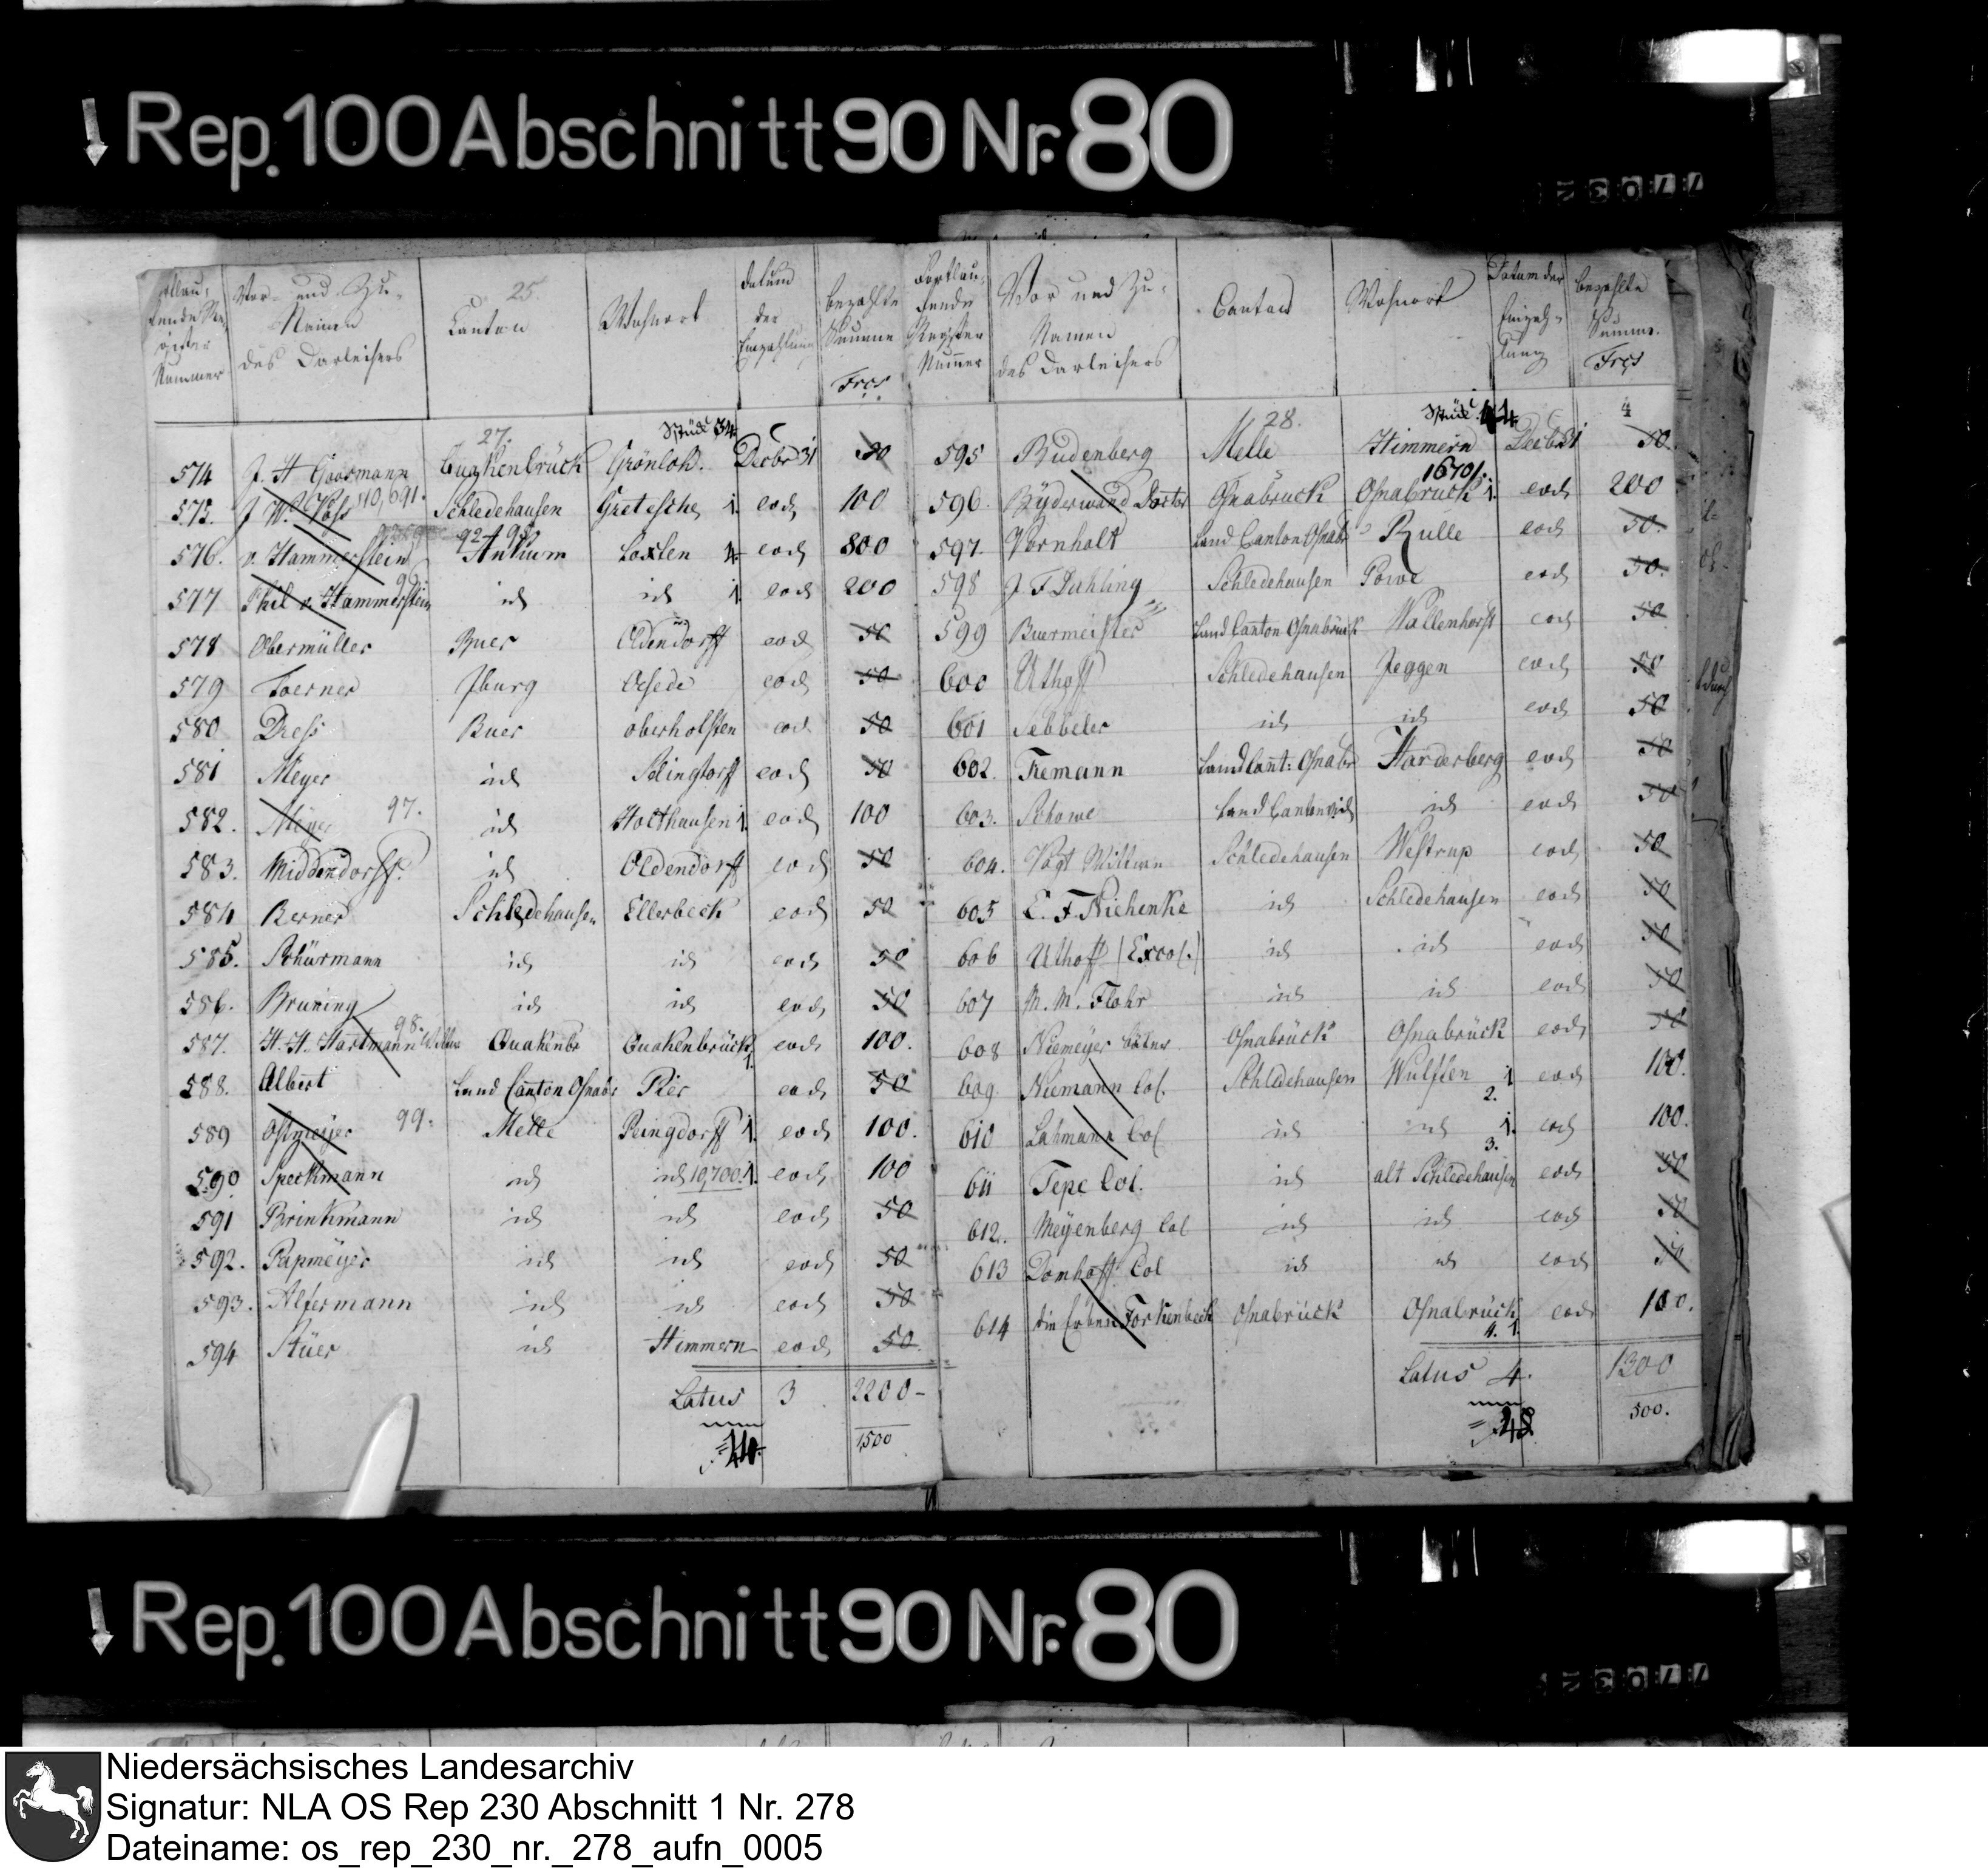 Rep. 100 Abschnitt 90 Nr. 80
25.
Vor- und Zu-
Namen
des Darleihers
Canton
Wohnort
Datum
der
Einzahlung
bezahlte
Summe
Frcs
27.
Stück 34
574 J. H. Goosmann Quakenbrück Grönloh. Decbr 31 50
575. J W. Voss 110,691. Schledehausen Gretesche 1. eod 100
576. v. Hammerstein 92-95. Ankum Loxten 4. eod 800
577 Phil v. Hammerstein 96 id id 1. eod 200
578 Obermüller Buer Oldendorff eod 50
579 Toerner Iburg Oesede eod 50
580 Dress Buer oberholsten eod 50
581 Meyer id eod 50
582. Meyer 97. id Holthausen 1. eod 100
583. Middendorff. id Oldendorff eod 50
584 Berner Schledehausen Ellerbeck eod 50
585. Schürmann id id eod 50
586. Bruning id id eod 50
587. H. H. Hartmann 98. Quakenbr Quakenbrück 1. eod 100.
588. Albert Land Canton Osnabr Pier eod 50
589 Ostmeyer 99. Melle 1. eod 100.
590 Speckmann id id 19,700. 1. eod 100
591 Brinkmann id id eod 50
592. Papmeyer id id eod 50
593. Altermann id id eod 50
594 Stüer id Himmern eod 50
Latus 3 2200-
1500
Fortlau-
fende
Register
Nummer
Vor und Zu-
Namen
des Darleihers
Canton
Wohnort
Datum der
Einzah-
lung
bezahlte
Summe.
Frcs
28.
Stück 44
4
595 Budenberg Melle Himmern Decbr 31 50.
1670/.
596. Doctor Osnabruck Osnabruck 1. eod 200
597. Vornholt Land Canton Osnabr Rulle eod 50.
598 J F Dahling Schledehausen Powe eod 50.
599 Buermeister Land Canton Osnabrück Wallenhorst eod 50
600 Uthoff Schledehausen Jeggen eod 50
601 Sebbeler id id eod 50
602. Tiemann Land Cant: Osnabr Harderberg eod 50
603. Schowe Land Canton id id eod 50
604. Vogt Schledehausen Westrup eod 50
605 E. F. Niehenke id Schledehausen eod 50
606 Uthoff (Excol.) id id eod 50
607 M. M. Flohr id id eod 50
608 Niemeyer Osnabrück Osnabrück eod 50
609. Niemann Col. Schledehausen Wulften 1 eod 100.
2.
610 Lahmann Col id id 1. eod 100.
3.
611 Tepe Col. id alt Schledehausen eod 50
612. Meyenberg Col id id eod 50
613 Domhoff Col id id eod 50
614 die Erben Forkenbeck Osnabrück Osnabrück eod 100.
4. 1.
Latus 4. 1300
500.
Rep. 100 Abschnitt 90 Nr. 80
Niedersächsisches Landesarchiv
Signatur: NLA OS Rep 230 Abschnitt 1 Nr. 278
Dateiname: os_rep_230_nr._278_aufn_0005